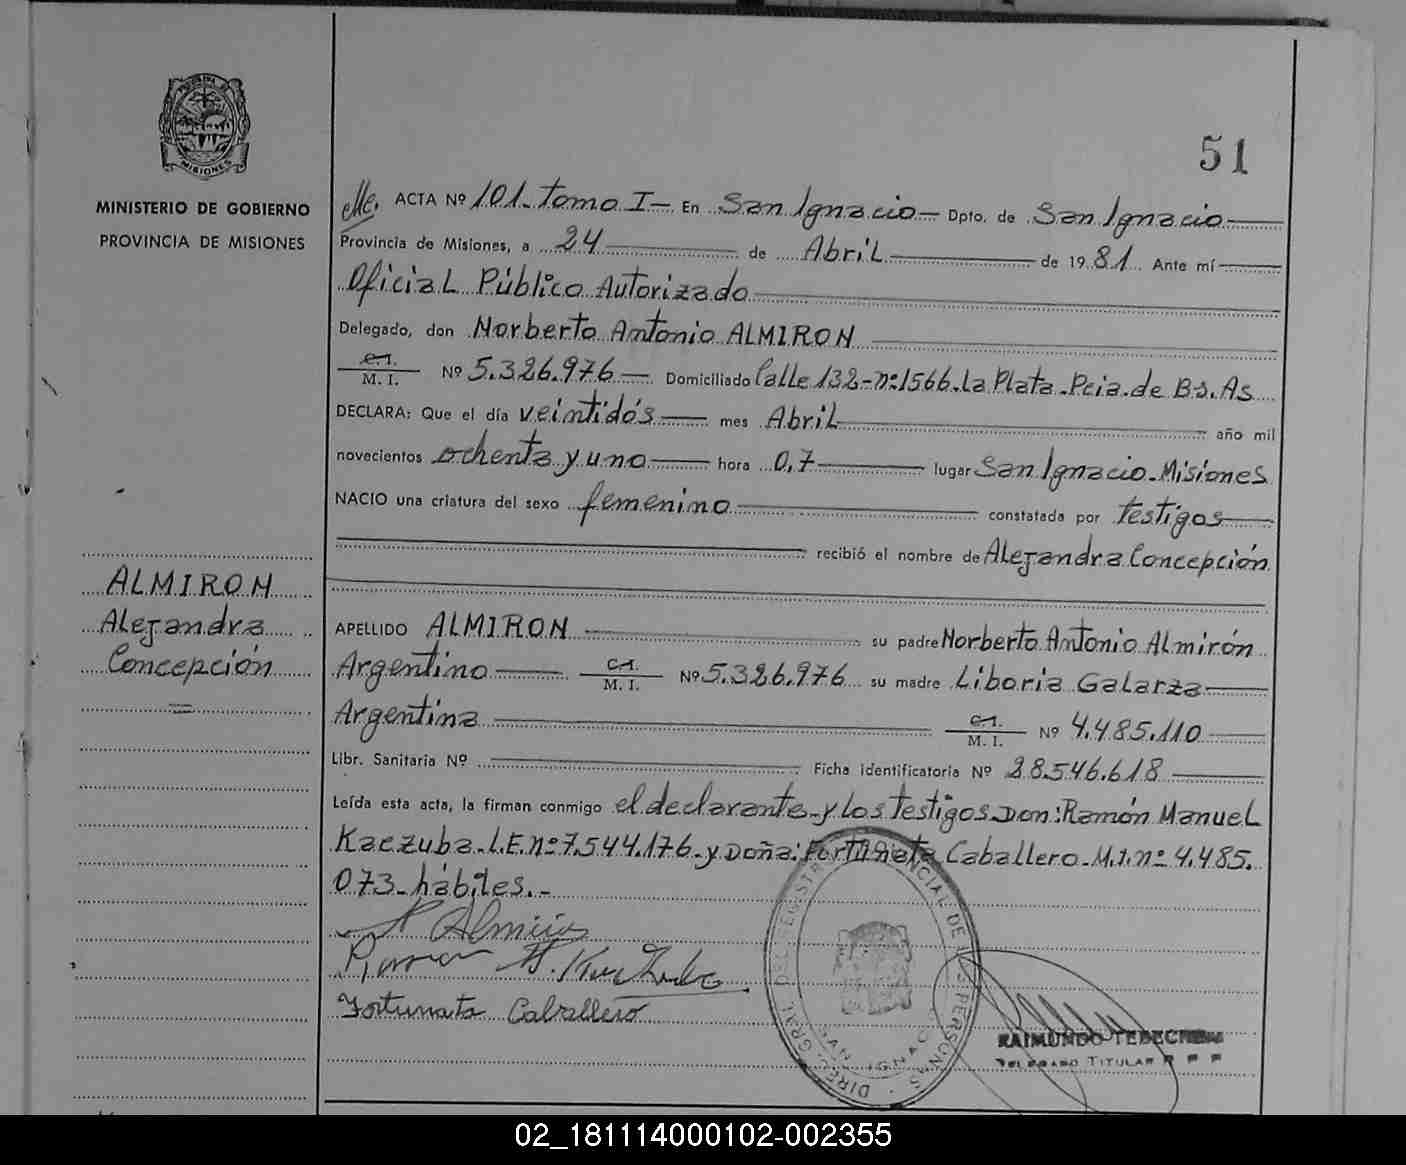 51
MISIONES
MINISTERIO DE GOBIERNO
PROVINCIA DE MISIONES
ACTA Nº 101. Tomo I - En San Ignacio - Dpto. de San Ignacio
Provincia de Misiones, a 24 de Abril de 1981 Ante mí
Oficial Público Autorizado
Delegado, don Norberto Antonio ALMIRON
C.I. M. I. Nº 5.326.976 - Domiciliado Calle 132-nº1566.La Plata.Pcia.de Bs.As
DECLARA: Que el día veintidós mes Abril año mil
novecientos ochenta y uno hora 0,7 lugar San Ignacio.Misiones
NACIO una criatura del sexo femenino constatada por testigos
recibió el nombre de Alejandra Concepción
ALMIRON
Alejandra
Concepción
APELLIDO ALMIRON su padre Norberto Antonio Almirón
Argentino C.I. M. I. Nº 5.326.976 su madre Liboria Galarza
Argentina C.I. M. I. Nº 4.485.110
Libr. Sanitaria Nº Ficha identificatoria Nº 28.546.618
Leída esta acta, la firman conmigo el declarante y los testigos Don: Ramón Manuel
Kaczuba.L.E.nº7.544.176.y Doña: Fortunata Caballero.M.I.nº 4.485.
073.hábiles.-
Almirón
Ramon M. Kaczuba
Fortunata Caballero
DIREC. GRAL. DEL REGISTRO PROVINCIAL DE LAS PERSONAS
SAN IGNACIO
RAIMUNDO
DELEGADO TITULAR
02_181114000102-002355